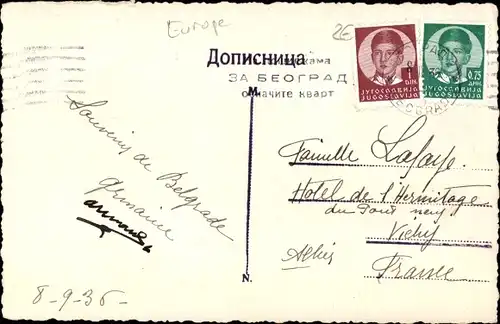 Europe
2€
Дописница
М
ЗА БЕОГРАД
означите кварт
1
ДИН.
ЈУГОСЛАВИЈА
JUGOSLAVIJA
0,75
ДИН.
ЈУГОСЛАВИЈА
JUGOSLAVIJA
BEOGRAD
Souvenir de Belgrade
Germaine
Famille Lafaye
Hotel de l'Hermitage
du Pont neuf
Vichy
Allier
France
8-9-36-
N.